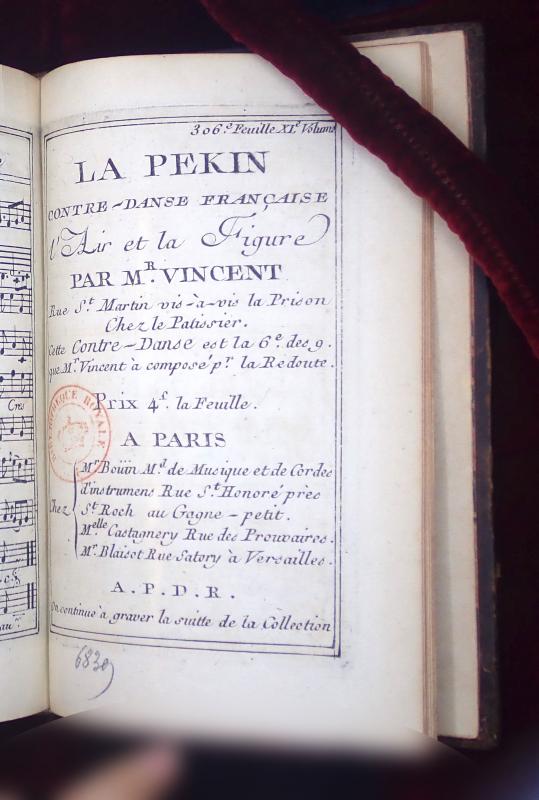 306.e Feuille XI.e Volume
LA PEKIN
CONTRE-DANSE FRANÇAISE
l'Air et la Figure
PAR M.R VINCENT
Rue S.t Martin vis-à-vis la Prison
Chez le Patissier.
Cette Contre-Danse est la 6.e des 9.
que M.r Vincent à composé p.r la Redoute.
Prix 4.f la Feuille.
A PARIS
Chez
M.r Boüin M.d de Musique et de Cordes
d'instrumens Rue S.t Honoré près
S.t Roch au Gagne-petit.
M.elle Castagnery Rue des Prouvaires.
M.r Blaisot Rue Satory à Versailles.
A.P.D.R.
On continue à graver la suitte de la Collection
Cres
ROYALE